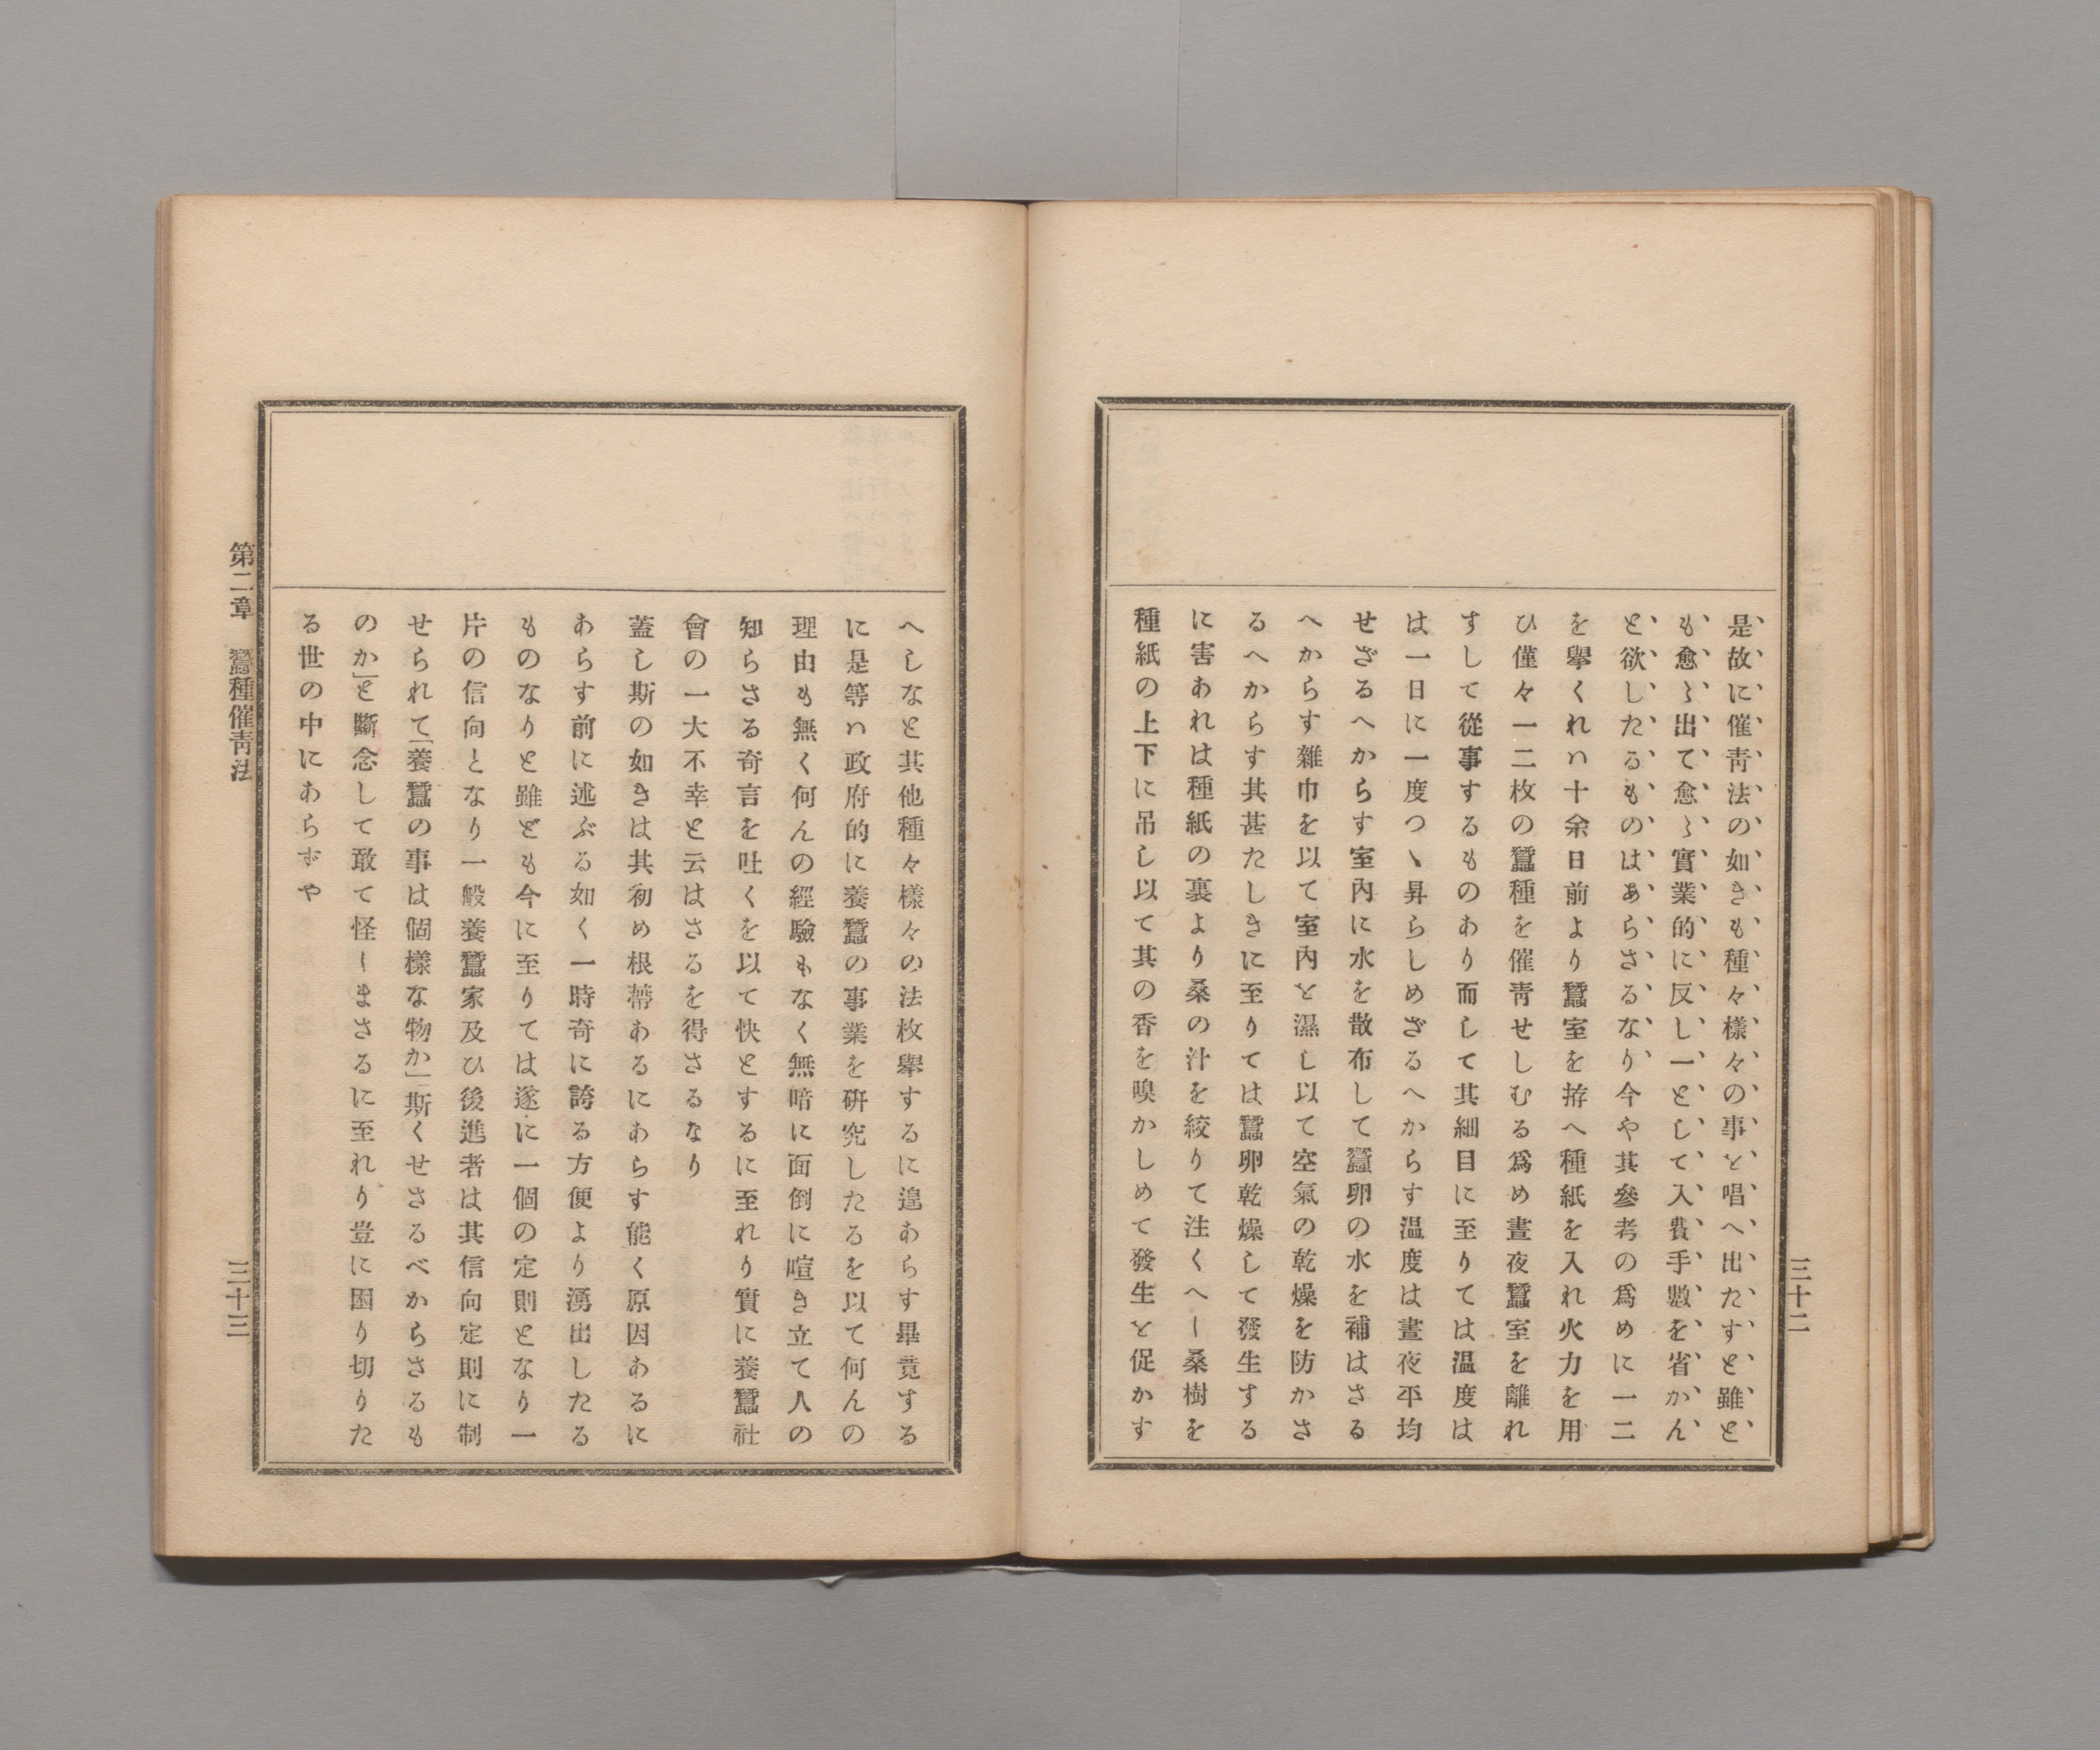 是故に催靑法の如きも種々樣々の事を唱へ出たすと雖と
も愈〻出て愈〻實業的に反し一として入費手數を省かん
と欲したるものはあらさるなり今や其參考の爲めに一二
を擧くれハ十余日前より蠶室を拵へ種紙を入れ火力を用
ひ僅々一二枚の蠶種を催靑せしむる爲め晝夜蠶室を離れ
すして從事するものあり而して其細目に至りては温度は
は一日に一度つゝ昇らしめざるへからす温度は晝夜平均
せざるへからす室內に水を散布して蠶卵の水を補はさる
へからす雜巾を以て室內を濕し以て空氣の乾燥を防かさ
るへからす其甚たしきに至りては蠶卵乾燥して發生する
に害あれは種紙の裏より桑の汁を絞りて注くへし桑樹を
種紙の上下に吊し以て其の香を嗅かしめて發生を促かす
三十二
へしなと其他種々樣々の法枚擧するに遑あらす畢竟する
に是等ハ政府的に養蠶の事業を硏究したるを以て何んの
理由も無く何んの經驗もなく無暗に面倒に喧き立て人の
知らさる奇言を吐くを以て快とするに至れり實に養蠶社
會の一大不幸と云はさるを得さるなり
蓋し斯の如きは其初め根蔕あるにあらす能く原因あるに
あらす前に述ぶる如く一時奇に誇る方便より湧出したる
ものなりと雖ども今に至りては遂に一個の定則となり一
片の信向となり一般養蠶家及ひ後進者は其信向定則に制
せられて「養蠶の事は個樣な物か」斯くせさるべからさるも
のか」と斷念して敢て怪しまさるに至れり豈に困り切りた
る世の中にあらずや
第二章　蠶種催靑法
三十三